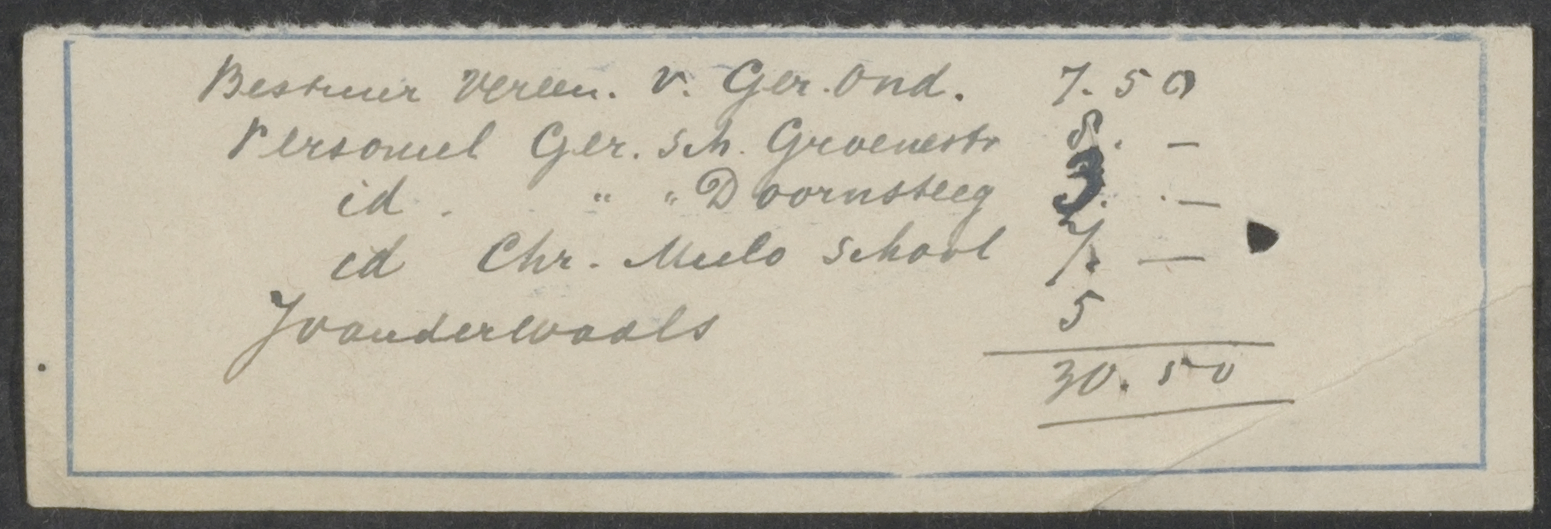 Bestuur Vereen. v. Ger. Ond. 7.50
Personeel Ger. Sch. Groenestr 8. —
id. " " Doornsteeg 3. . —
id Chr. Mulo School 7. —
J vanderwaals 5
30.50